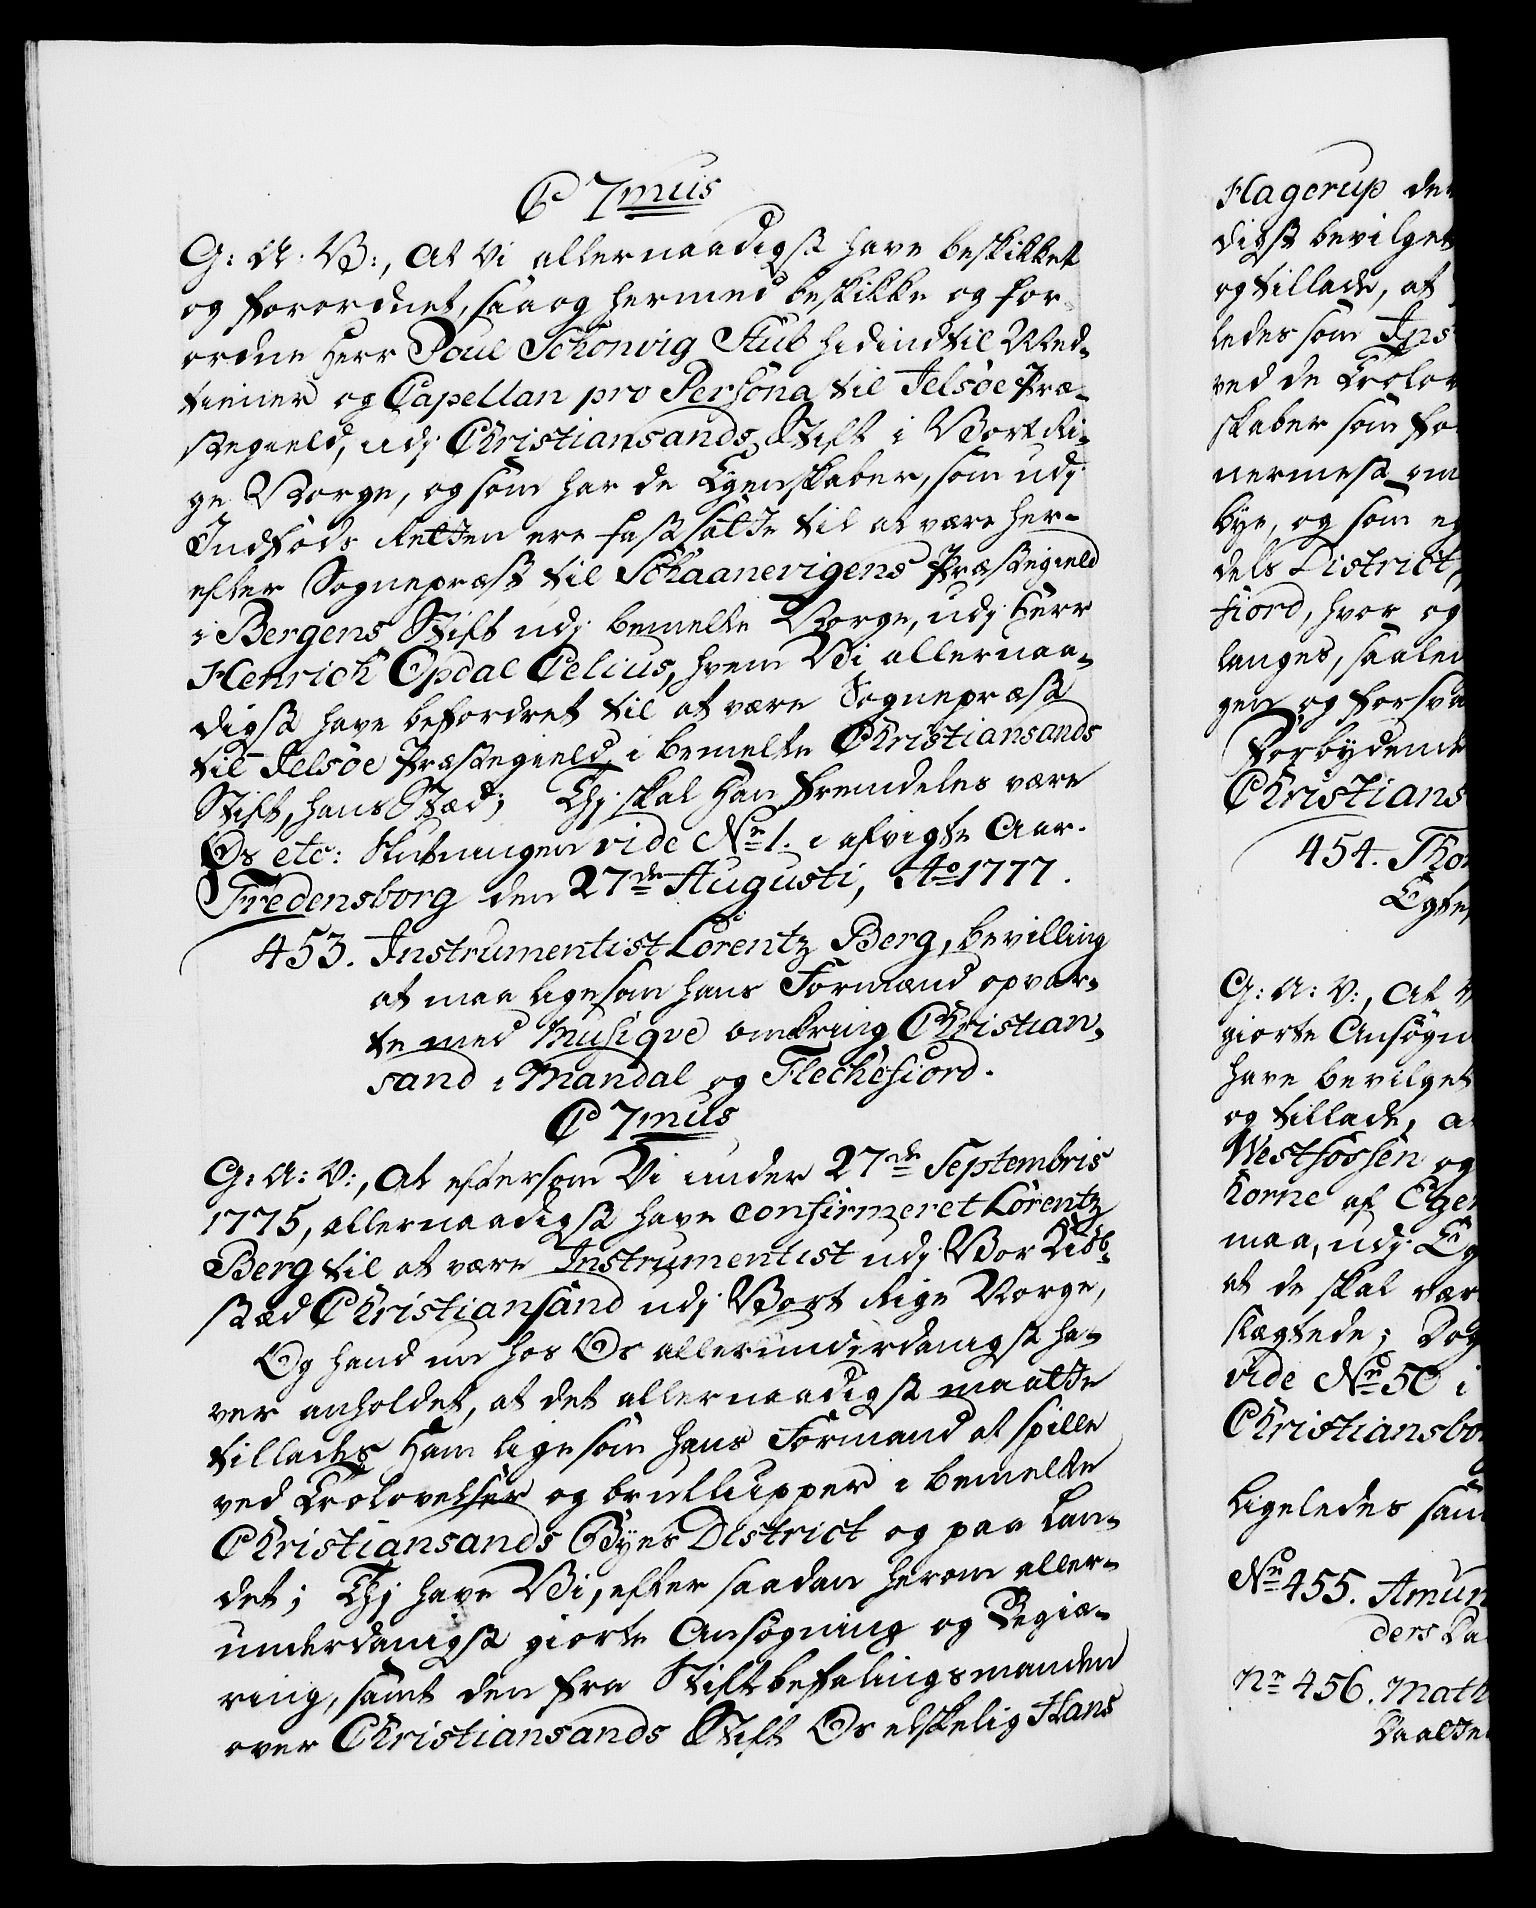 C 7mus
G: A: V:, At Vi allernaadigst have beskikket
og forordnet, saa og hermed beskikke og for-
ordne Herr Poul Schönvig Stub hidindtil Med-
tiener og Capellan pro Persona til Jelsøe Præ-
stegield, udj Christiansands Stift i Vort Ri-
ge Norge, og som har de Egenskaber, som udj
Indføds Retten ere fastsatte til at være her-
efter Sognepræst til Schaanevigens Præstegield
i Bergens Stift udj bemelte Norge, udj Herr
Henrich Opdal Celius, hvem Vi allernaa-
digst have befordret til at være Sognepræst
til Jelsøe Præstegield i bemelte Christiansands
Stift, hans Stæd; Thj skal Han fremdeles være
Os etc: Slutningen vide No 1. i afvigte Aar.
Fredensborg den 27de Augusti, Ao 1777.
453. Instrumentist Lorentz Berg, bevilling
at maa ligesom hans Formand opvar-
te med Musiqve omkring Christian-
sand i Mandal og Fleckefiord.
C 7mus
G: A: V:, At eftersom Vi under 27de Septembris
1775, allernaadigst have confirmeret Lorentz
Berg til at være Instrumentist udj Vor Kiøb-
stæd Christiansand udj Vort Rige Norge,
Og hand nu hos Os allerunderdanigst ha-
ver anholdet, at det allernaadigst maatte
tillades Ham ligesom hans Formand at spille
ved Trolovelser og brulluppper i bemelte
Christiansands Byes District og paa Lan-
det; Thj have Vi, efter saadan herom aller-
underdanigst giorte Ansøgning og Begiæ-
ring, samt den fra Stiftbefalingsmanden
over Christiansands Stift Os elskelig Hans
Hagerup
digst bevilget
og tillade, at
ledes som
ved de
skaber som
nermest om
bye, og som
dels District,
fiord, hvor og
langes,
gen og
Forbydende
Christians
454.
G: A: V:, At
giorte
have bevilget
og tillade,
Westfossen og
Korne af
maa, udj
at de skal
slægtede; Dog
vide No 50 i
Ligeledes
No 455.
ders
No 456.